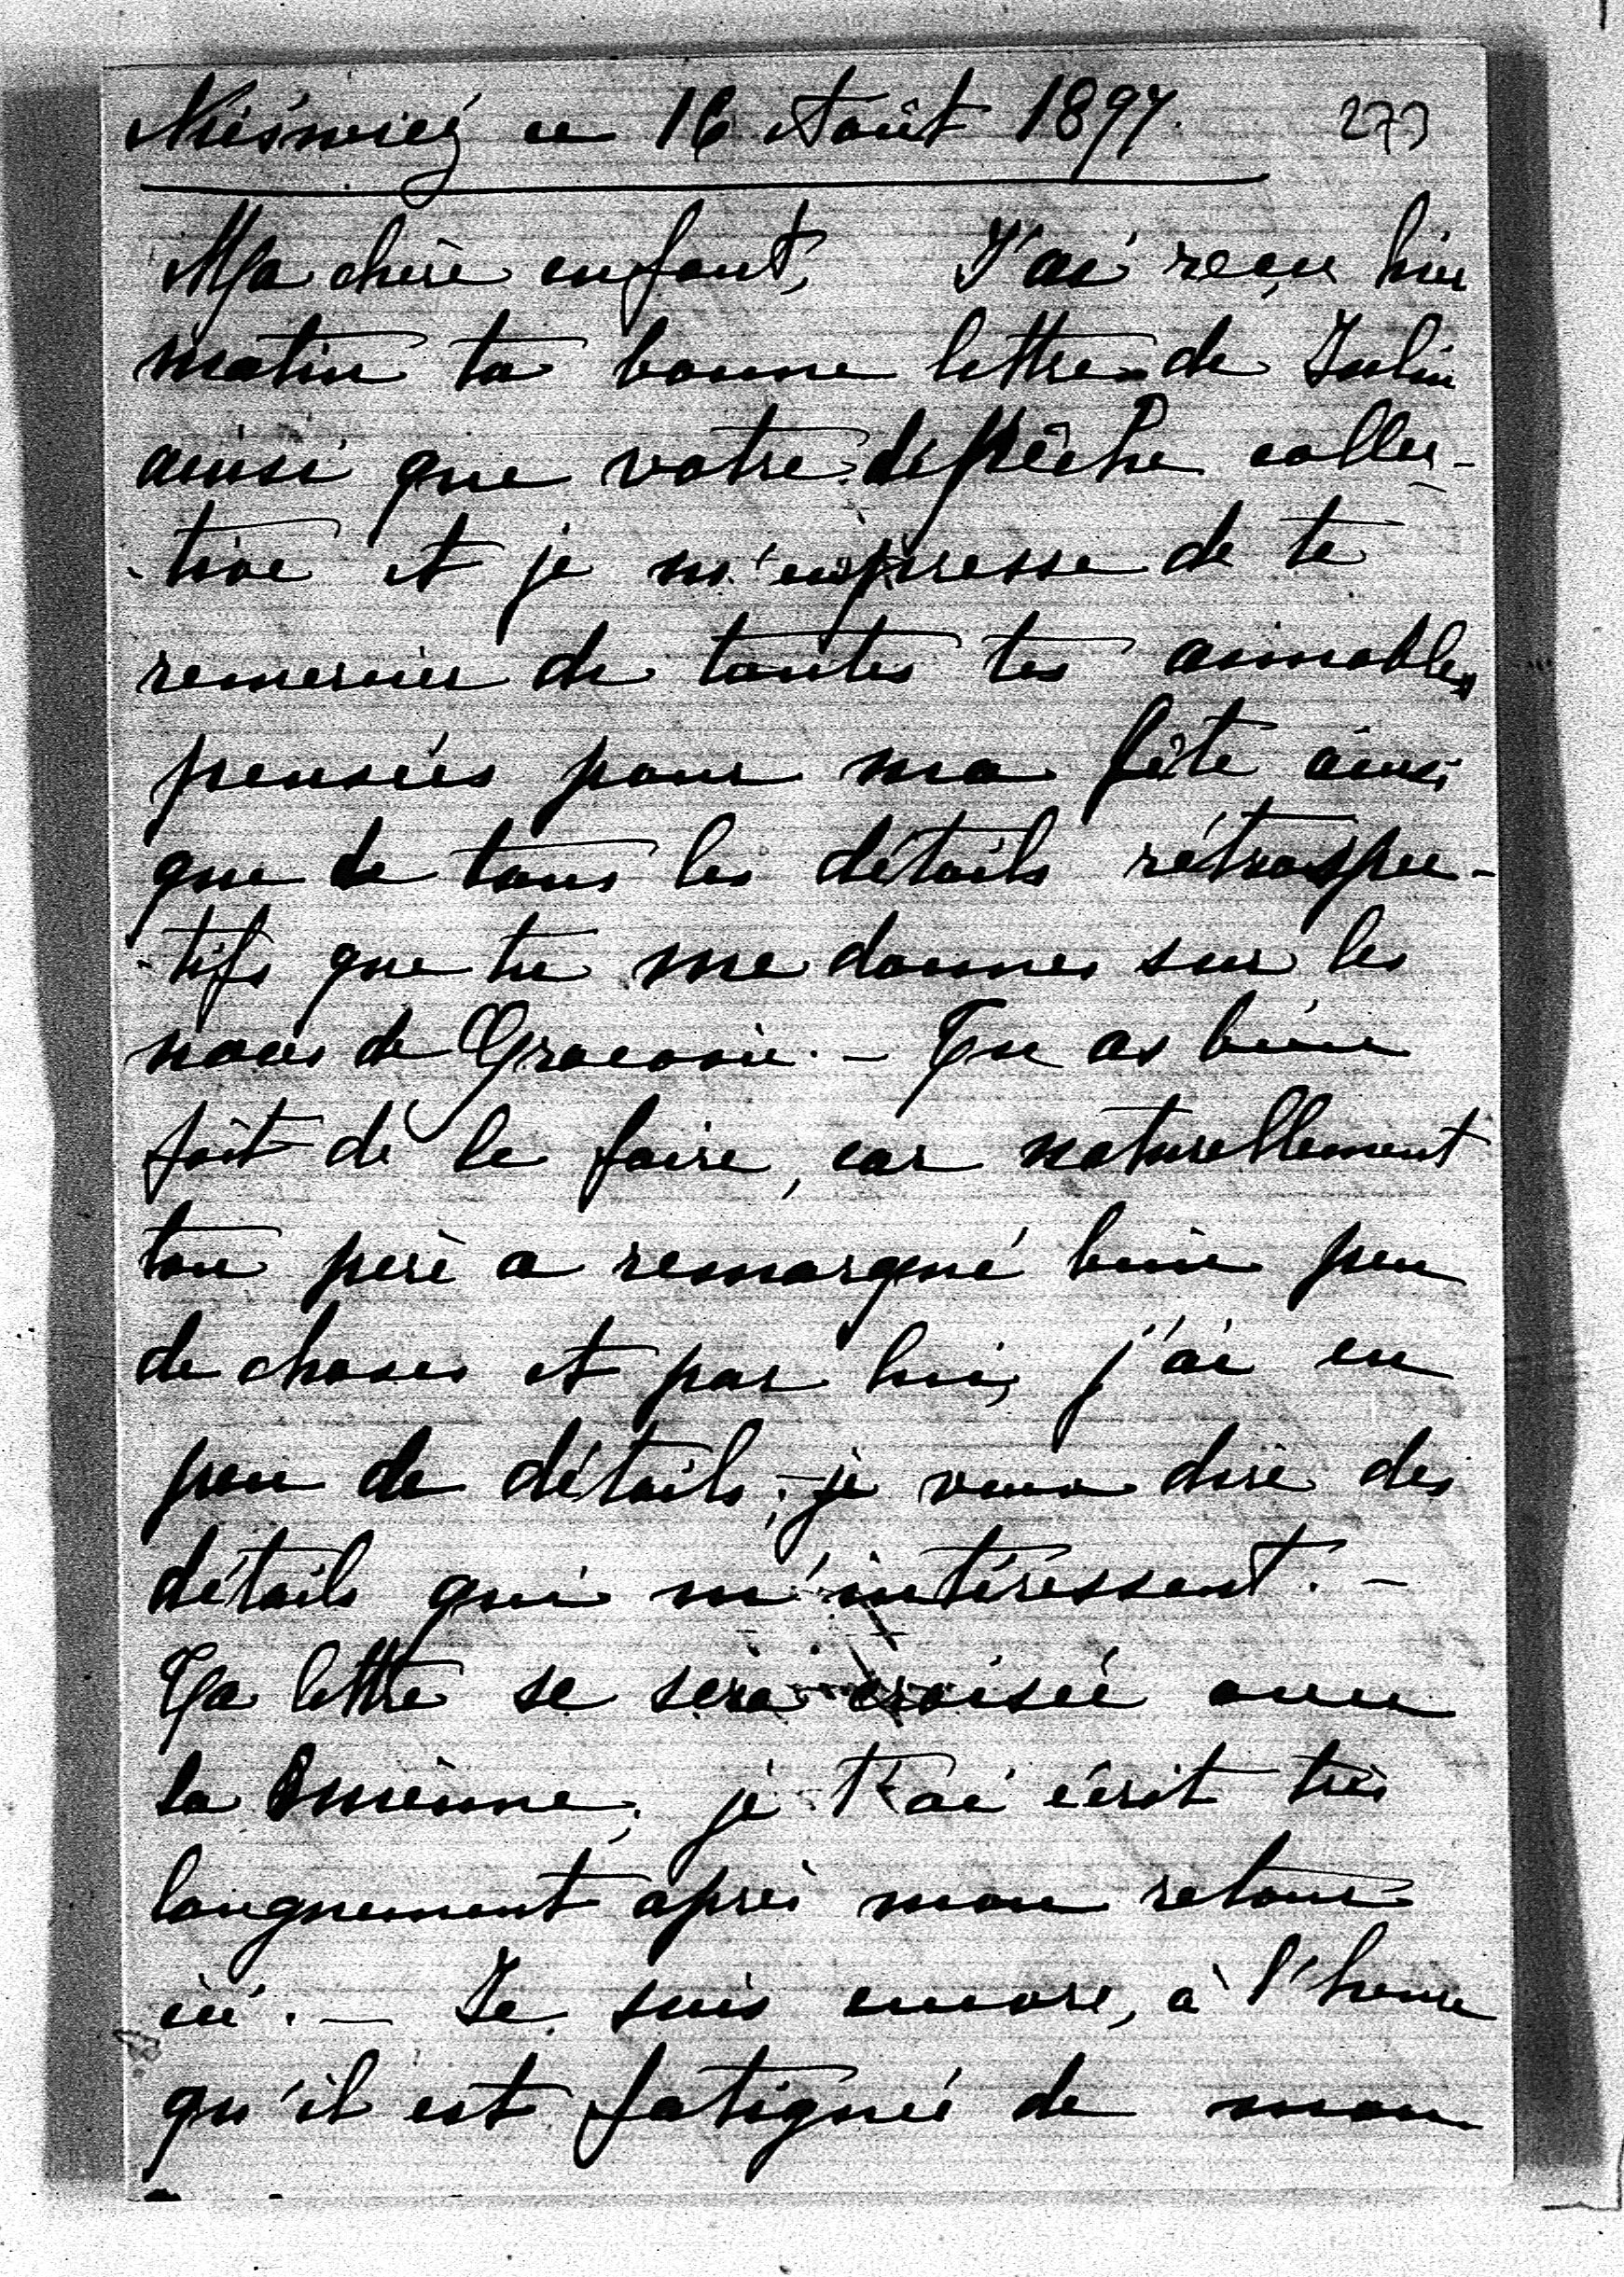 Nieśwież ce 16 Août 1897. 273
Ma chère enfant, J'ai reçu hier
matin ta bonne lettre de Iulin
ainsi que votre dépêche collec-
-tive et je m'empresse de te
remercier de toutes tes aimables
pensées pour ma fête ainsi
que de tous les détails rétrospec-
-tifs que tu me donnes sur les
noces de Cracovie. - Tu as bien
fait de le faire, car naturellement
ton père a remarqué bien peu
de choses et par lui, j'ai eu
peu de détails; - je veux dire des
détails qui m'intéressent. -
Ta lettre se sera croisée avec
la mienne, je t'ai écrit très
longuement après mon retour
ici. - Je suis encore, à l'heure
qu'il est fatiguée de mon